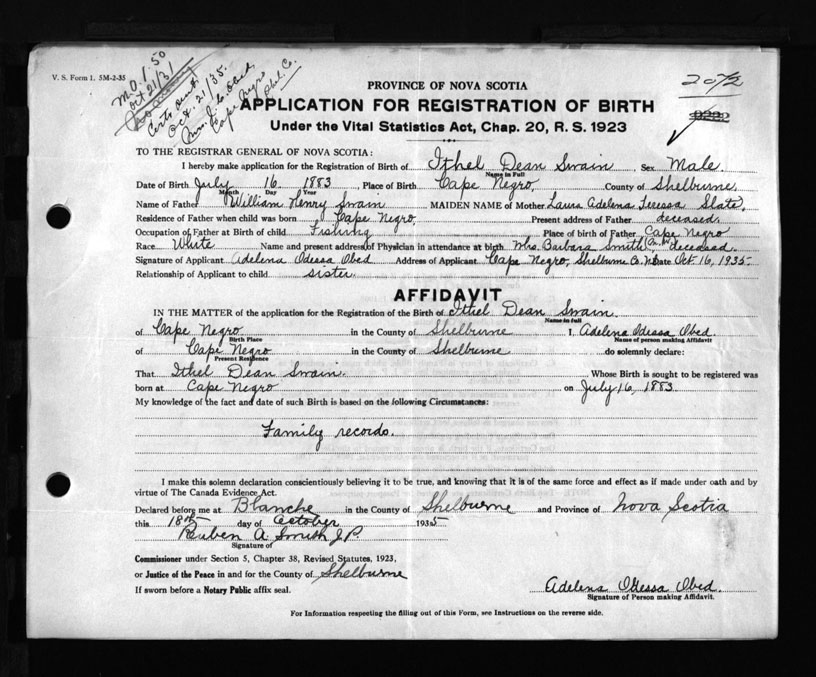 V. S. Form 1. 5M-2-35
M.O. 1.50
Oct 21/31
Certs sent
Oct. 21/35.
Mrs. J. C. Obed
Cape Negro
Shel. Co.
2072
PROVINCE OF NOVA SCOTIA
APPLICATION FOR REGISTRATION OF BIRTH
Under the Vital Statistics Act, Chap. 20, R. S. 1923
TO THE REGISTRAR GENERAL OF NOVA SCOTIA:
I hereby make application for the Registration of Birth of Ithel Dean Swain Sex Male.
Name in Full
Date of Birth July 16 1883, Place of Birth Cape Negro, County of Shelburne.
Month Day Year
Name of Father William Henry Swain MAIDEN NAME of Mother Laura Adelena Teressa Slate.
Residence of Father when child was born Cape Negro. Present address of Father deceased.
Occupation of Father at Birth of child Fishing Place of birth of Father Cape Negro
Race White Name and present address of Physician in attendance at birth Mrs. Barbara Smith deceased.
Signature of Applicant Adelena Odessa Obed Address of Applicant Cape Negro, Shelburne Co. N.S. Date Oct. 16, 1935.
Relationship of Applicant to child sister.
AFFIDAVIT
IN THE MATTER of the application for the Registration of the Birth of Ithel Dean Swain.
Name in full
of Cape Negro in the County of Shelburne I, Adelena Odessa Obed.
Birth Place Name of person making Affidavit
of Cape Negro in the County of Shelburne do solemnly declare:
Present Residence
That Ithel Dean Swain. Whose Birth is sought to be registered was
born at Cape Negro on July 16, 1883.
My knowledge of the fact and date of such Birth is based on the following Circumstances:
Family records.
I make this solemn declaration conscientiously believing it to be true, and knowing that it is of the same force and effect as if made under oath and by
virtue of The Canada Evidence Act.
Declared before me at Blanche in the County of Shelburne and Province of Nova Scotia
this 18th day of October 1935
Reuben A Smith J.P.
Signature of
Commissioner under Section 5, Chapter 38, Revised Statutes, 1923,
or Justice of the Peace in and for the County of Shelburne
If sworn before a Notary Public affix seal.
Adelena Odessa Obed.
Signature of Person making Affidavit.
For Information respecting the filling out of this Form, see Instructions on the reverse side.